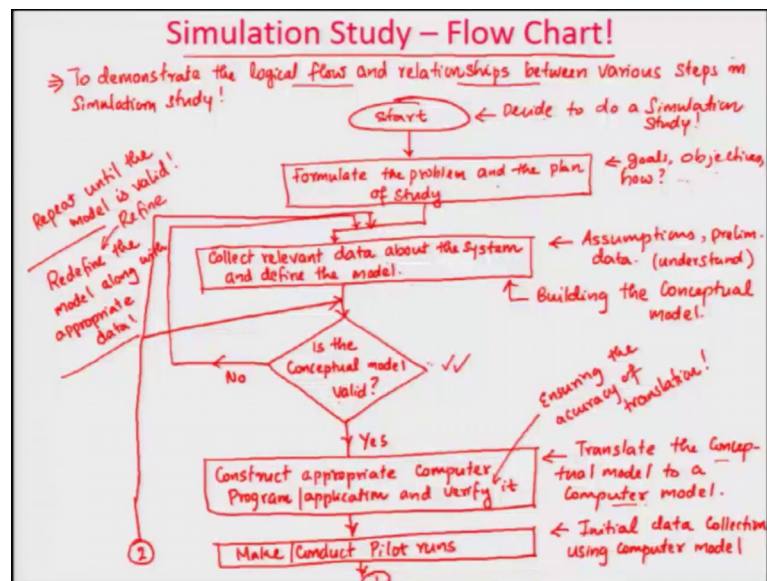 Simulation Study – Flow Chart!
⇒ To demonstrate the logical flow and relationships between various steps in
Simulation study!
start
← Decide to do a Simulation
study!
Formulate the problem and the plan
of study
← goals, objectives,
how? ...
Repeat until the
model is valid!
Refine
Redefine the
model along with
appropriate
data!
Collect relevant data about the system
and define the model.
← Assumptions, prelim.
data. (understand)
Building the Conceptual
model.
Is the
Conceptual model
valid?
No
Yes
Ensuring the
accuracy of
translation!
Construct appropriate Computer
Program/application and verify it
← Translate the Concep-
tual model to a
Computer model.
2
Make/Conduct Pilot runs
← Initial data Collection
using computer model
1